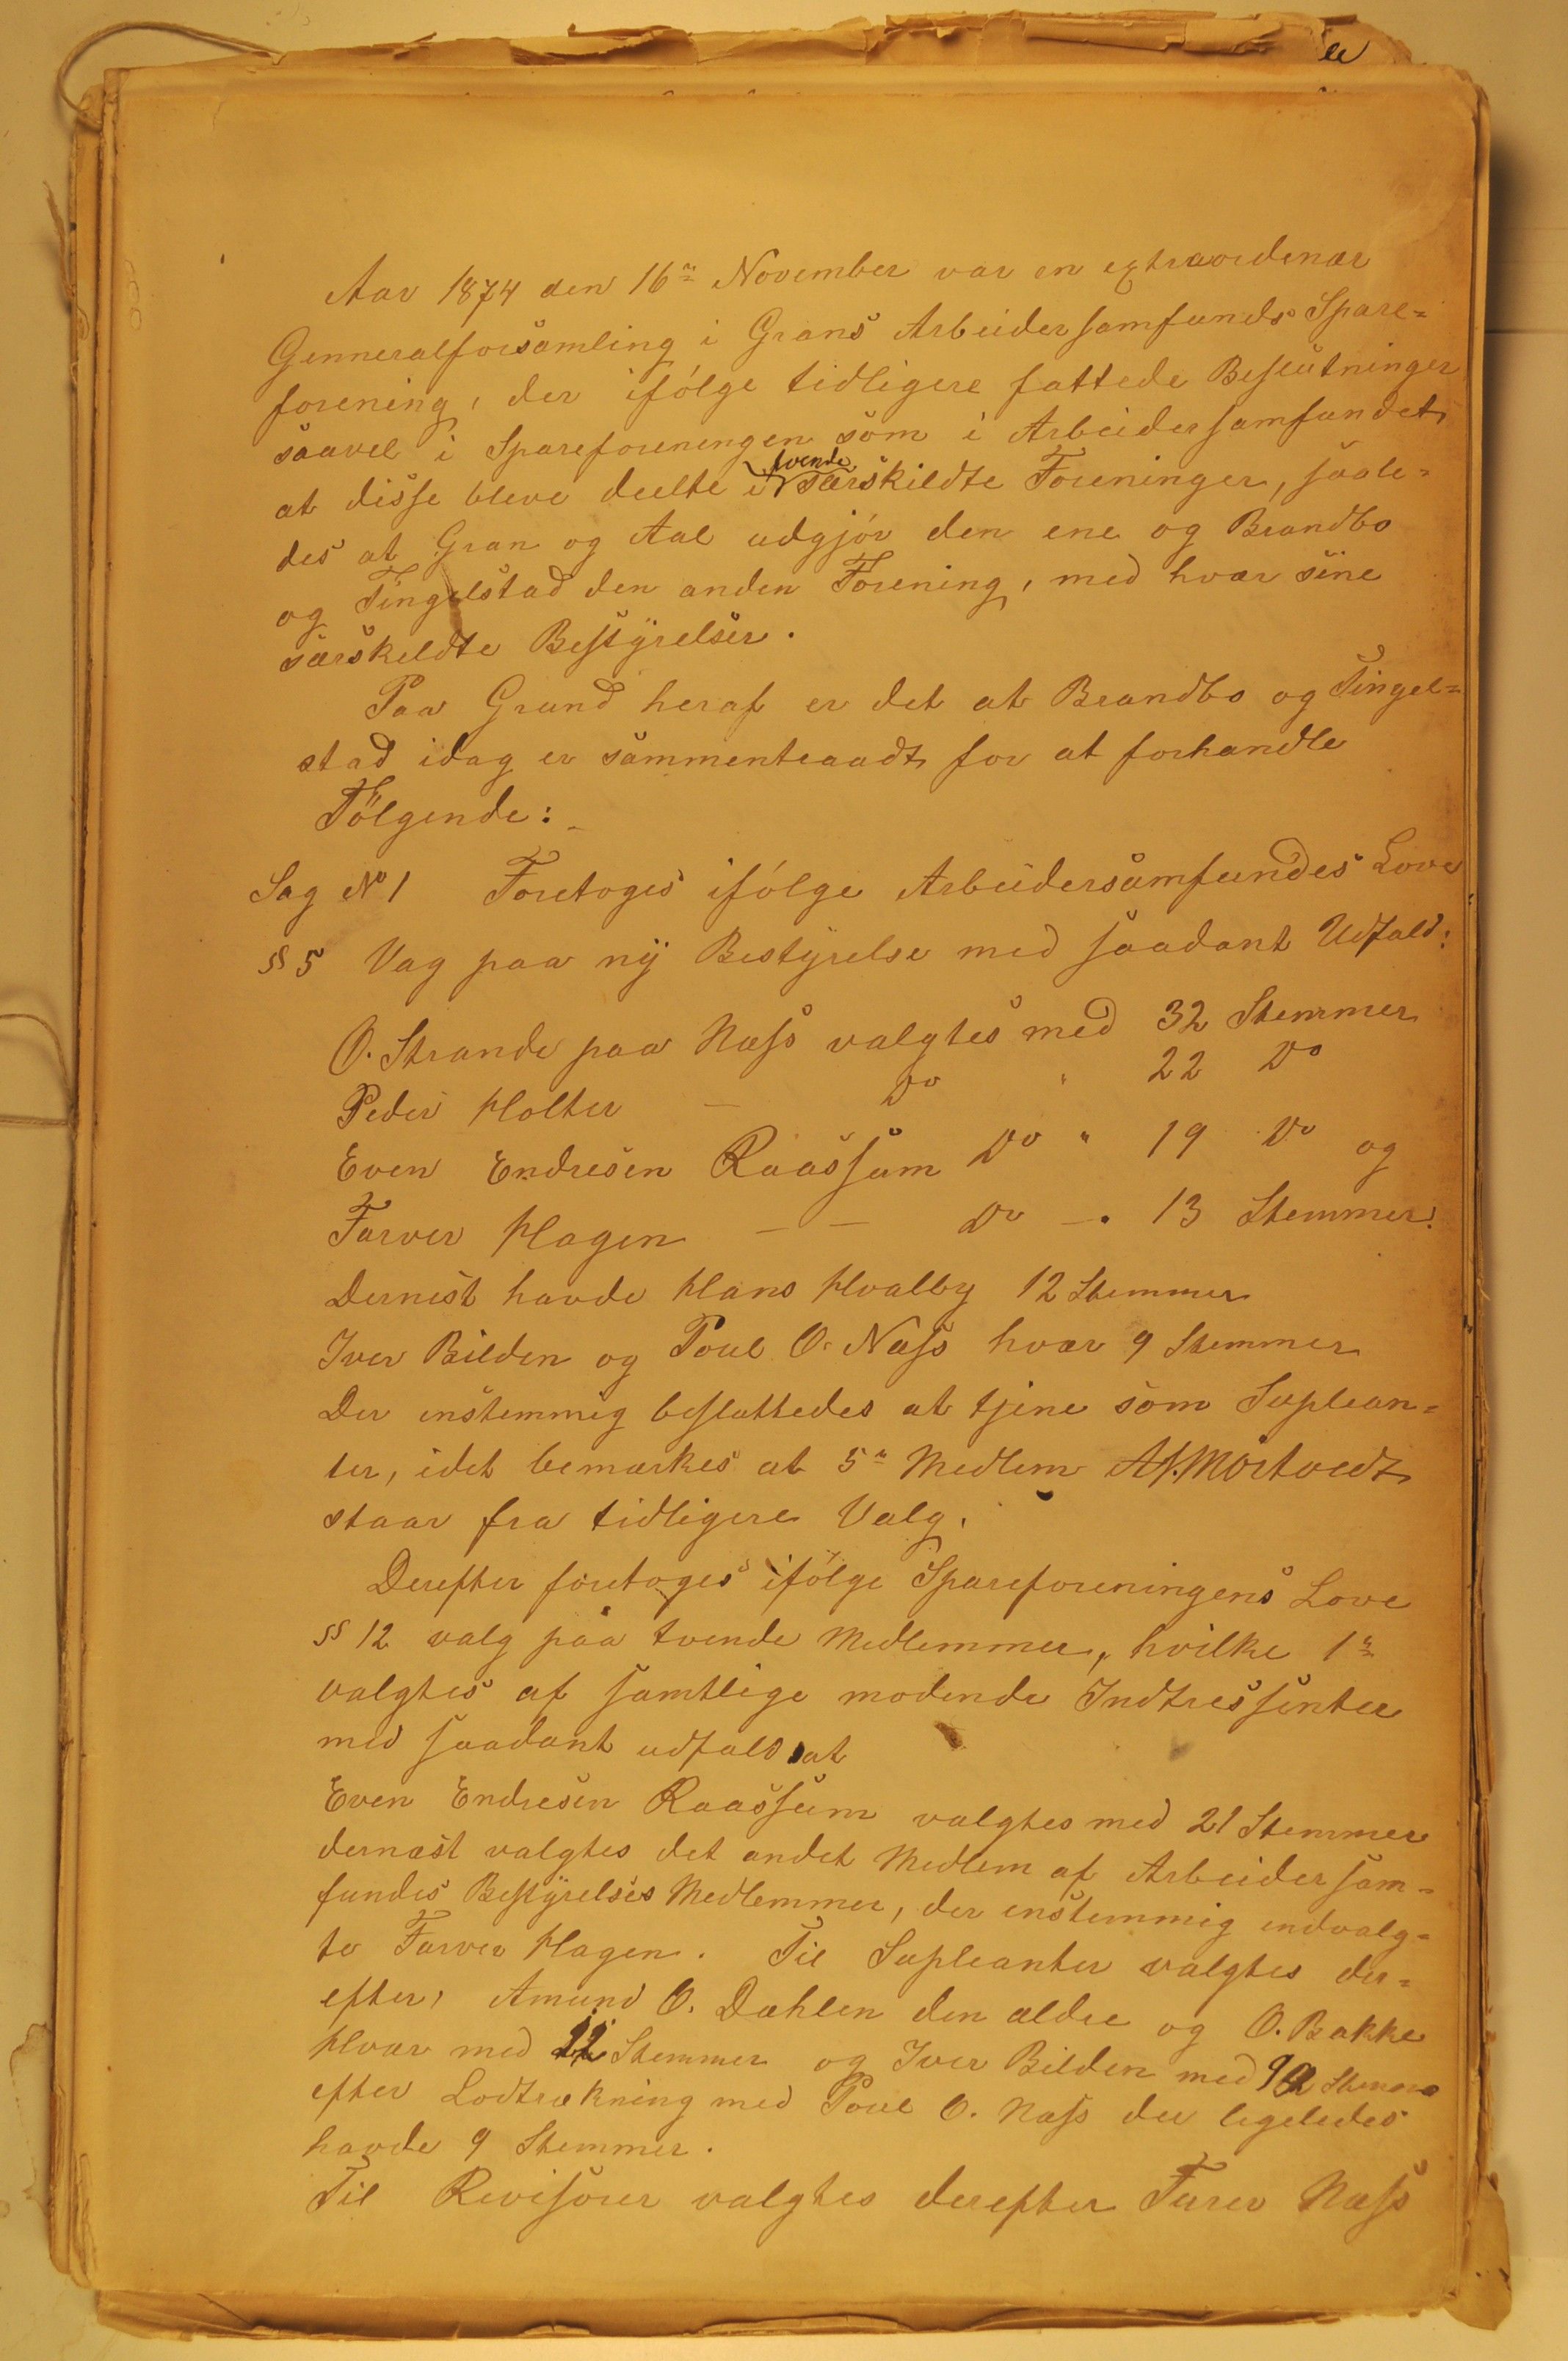 Aar 1874 den 16de November var en extraordenær
Genneralforsamling i Grans Arbeidersamfunds Spare=
forening, der ifólge tidligere fattede Beslutninger
saavel i Spareforeningen som i Arbeidersamfundet
at disse bleve deelte i tvende særskildte Foreninger, saale=
des at Gran og Aal udgjór den ene og Brandbo
og Tingelstad den anden Forening, med hvær sine
særskeldte Bestÿrelser.
Paa Grund heraf er det at Brandbo og Tingel=
stad idag er sammentraadt for at forhandle
Fölgende:
Sag No 1 Foretoges ifólge Arbeidersamfundes Love
§§ 5 Vag paa nÿ Bestÿrelse med saadant Udfald:
O. Strande paa Næss valgtes med 32 Stemmer
Peder Holter — Do " 22 Do
Even Endresen Raassum Do " 19 Do og
Farver Hagen — — Do — " 13 Stemmer.
Dernest havde Hans Hvalby 12 Stemmer
Iver Bilden og Poul O. Næss hvær 9 Stemmer
Der enstemmig besluttedes at tjene som Suplean=
ter, idet bemærkes at 5te Medlem Mörtvedt
staar fra tidligere Valg.
Derefter foretoges ifólge Spareforeningens Love
§§ 12 valg paa tvende Medlemmer, hvilke 1ste
valgtes af samtlige modende Indtressenter
med saadant udfald at
Even Endresen Raassum valgtes med 21 Stemmer
dernæst valgtes det andet Medlem af Arbeidersam=
fundes Bestÿrelses Medlemmer, der enstemmig endvalg=
te Farver Hagen. Til Supleanter valgtes der=
efter, Amund O. Dæhlen den ældre og O. Bakke
Hvær med 11 Stemmer og Iver Bilden med 9 Stemmer
efter Lodtrækning med Poul O. Næss der legeledes
havde 9 Stemmer.
Til Revisorer valgtes derefter Furer Næss